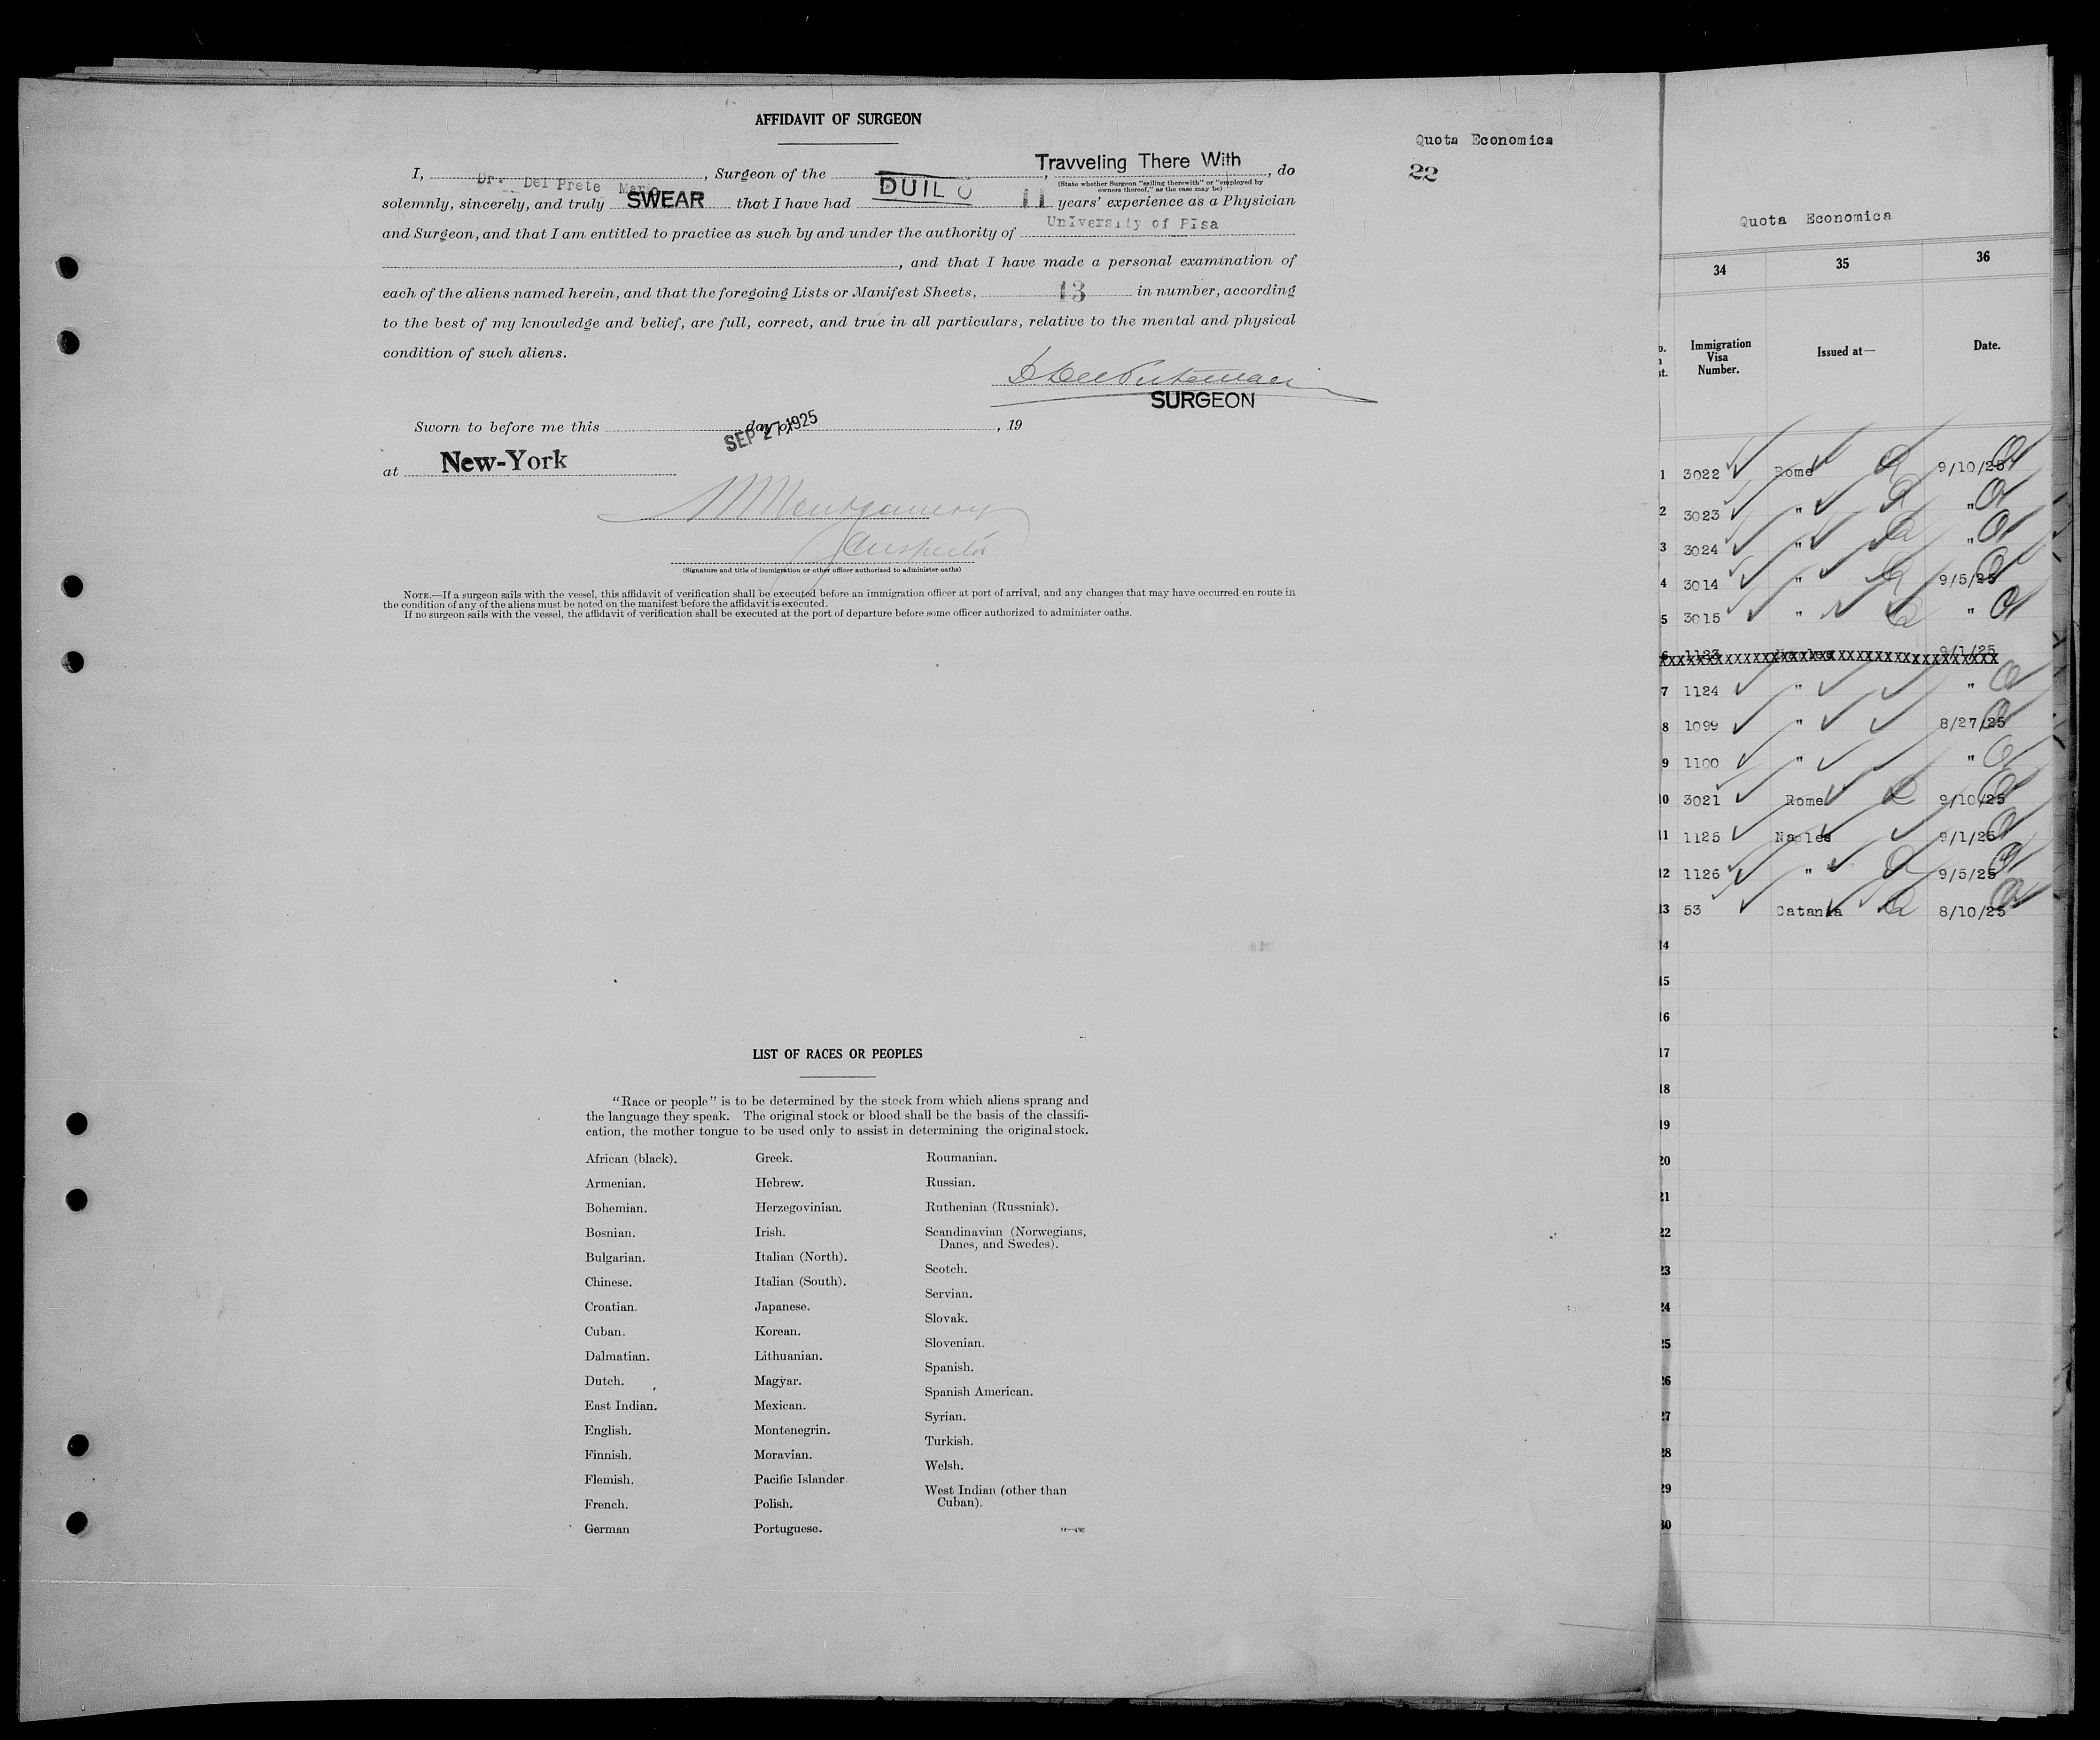 AFFIDAVIT OF SURGEON
Quota Economica
22
I, Dr. Del Prete Mario, Surgeon of the DUILO, Travveling There With, do
(State whether Surgeon "sailing therewith" or "employed by
owners thereof," as the case may be)
solemnly, sincerely, and truly SWEAR that I have had 11 years' experience as a Physician
and Surgeon, and that I am entitled to practice as such by and under the authority of University of Pisa
, and that I have made a personal examination of
each of the aliens named herein, and that the foregoing Lists or Manifest Sheets, 13 in number, according
to the best of my knowledge and belief, are full, correct, and true in all particulars, relative to the mental and physical
condition of such aliens.
SURGEON
Sworn to before me this SEP 27 1925 day of , 19
at New-York
Montgomery
Inspector
(Signature and title of immigration or other officer authorized to administer oaths)
NOTE.—If a surgeon sails with the vessel, this affidavit of verification shall be executed before an immigration officer at port of arrival, and any changes that may have occurred en route in
the condition of any of the aliens must be noted on the manifest before the affidavit is executed.
If no surgeon sails with the vessel, the affidavit of verification shall be executed at the port of departure before some officer authorized to administer oaths.
LIST OF RACES OR PEOPLES
"Race or people" is to be determined by the stock from which aliens sprang and
the language they speak. The original stock or blood shall be the basis of the classifi-
cation, the mother tongue to be used only to assist in determining the original stock.
African (black).
Armenian.
Bohemian.
Bosnian.
Bulgarian.
Chinese.
Croatian.
Cuban.
Dalmatian.
Dutch.
East Indian.
English.
Finnish.
Flemish.
French.
German
Greek.
Hebrew.
Herzegovinian.
Irish.
Italian (North).
Italian (South).
Japanese.
Korean.
Lithuanian.
Magyar.
Mexican.
Montenegrin.
Moravian.
Pacific Islander
Polish.
Portuguese.
Roumanian.
Russian.
Ruthenian (Russniak).
Scandinavian (Norwegians,
Danes, and Swedes).
Scotch.
Servian.
Slovak.
Slovenian.
Spanish.
Spanish American.
Syrian.
Turkish.
Welsh.
West Indian (other than
Cuban).
Quota Economica
34 35 36
Immigration
Visa
Number.
Issued at—
Date.
1 3022 Rome 9/10/25
2 3023 " "
3 3024 " "
4 3014 " 9/5/25
5 3015 " "
6 1123 Naples 9/1/25
7 1124 " "
8 1099 " 8/27/25
9 1100 " "
10 3021 Rome 9/10/25
11 1125 Naples 9/1/25
12 1126 " 9/5/25
13 53 Catania 8/10/25
14
15
16
17
18
19
20
21
22
23
24
25
26
27
28
29
30